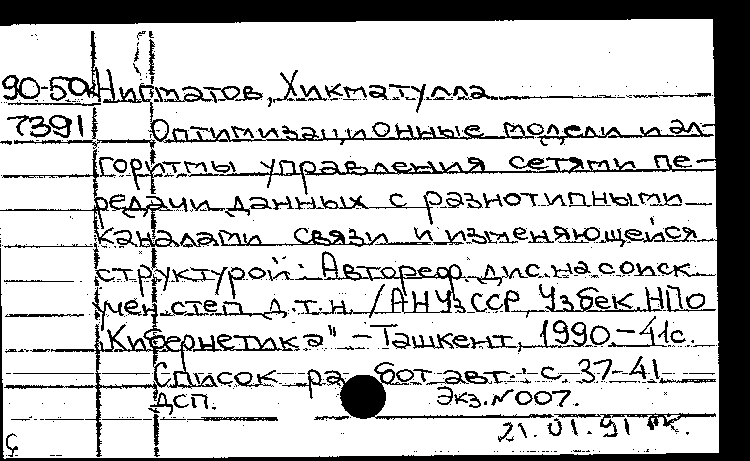 90-50к Нигматов, Хикматулла
7391 Оптимизационные модели и ал-
горитмы управления сетями пе-
редачи данных с разнотипными
каналами связи и изменяющейся
структурой: Автореф. дис. на соиск.
учен. степ. д.т.н. / АН УзССР, Узбек. НПО
"Кибернетика" - Ташкент, 1990. - 41с.
Список работ авт.: с. 37-41
ДСП. Экз. № 007.
21.01.91